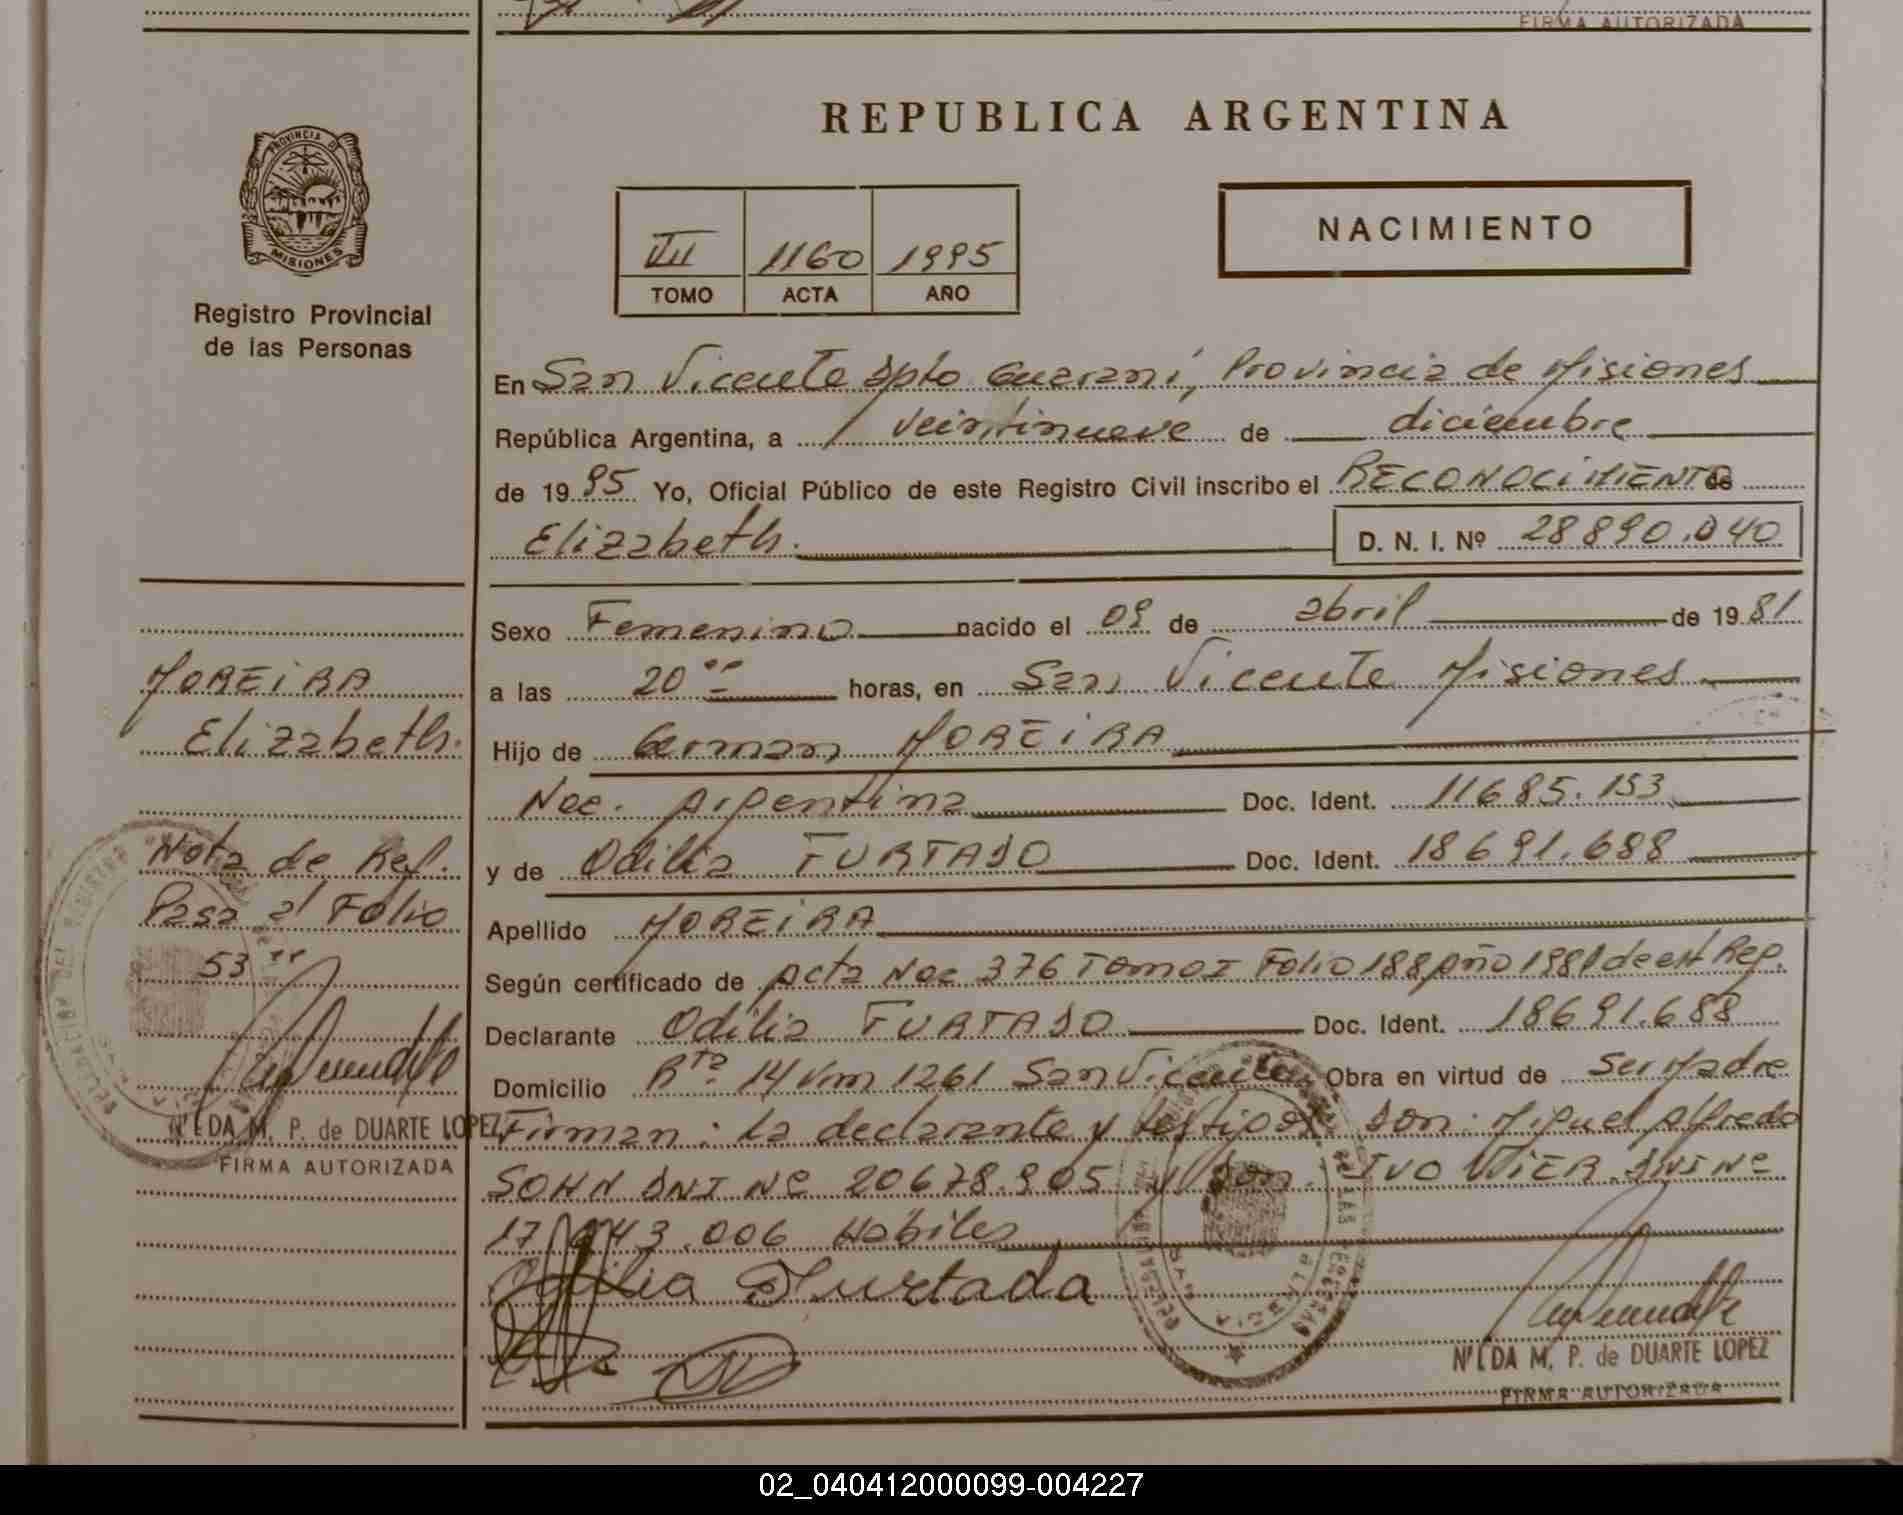 FIRMA AUTORIZADA
REPUBLICA ARGENTINA
PROVINCIA DE
MISIONES
Registro Provincial
de las Personas
VII 1160 1995
TOMO ACTA AÑO
NACIMIENTO
En San Vicente Dpto Guarani, Provincia de Misiones
República Argentina, a veintinueve de diciembre
de 1995 Yo, Oficial Público de este Registro Civil inscribo el RECONOCIMIENTO de
Elizabeth.
D. N. I. Nº 28890.040
Sexo Femenino nacido el 09 de abril de 1981
a las 20 horas, en San Vicente Misiones
Hijo de German MOREIRA
Nac. Argentina Doc. Ident. 11685.153
y de Odilia FURTADO Doc. Ident. 18691.688
Apellido MOREIRA
Según certificado de Acta Nac 376 Tomo I Folio 188 Año 1981 de est Reg.
Declarante Odilia FURTADO Doc. Ident. 18691.688
Domicilio Rta. 14 Km 1261 San Vicente Obra en virtud de ser Madre
Firman: La declarante y testigos Don: Miguel Alfredo
SOHN DNI Nº 20678.905 y Don. IVO WIER. DNI Nº
17.943.006 Habiles
Odilia Furtada
NILDA M. P. de DUARTE LOPEZ
FIRMA AUTORIZADA
MOREIRA
Elizabeth.
Nota de Ref.
Pasa al Folio
53
NILDA M. P. de DUARTE LOPEZ
FIRMA AUTORIZADA
02_040412000099-004227